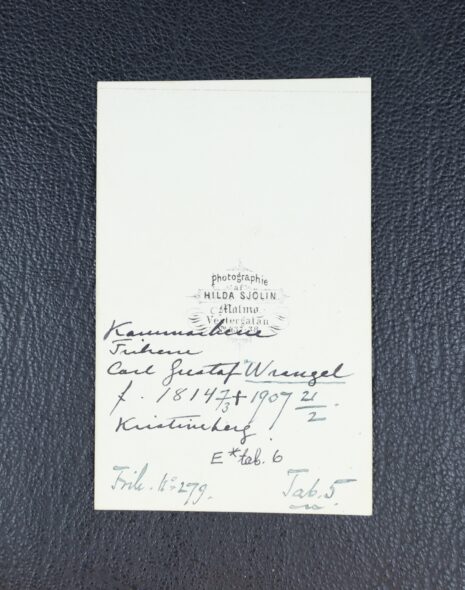 photographie
af
HILDA SJÖLIN
Malmö
Vestergatan
Kammarherre
Friherre
Carl Gustaf Wrangel
f. 1814 7/3 + 1907 21/2.
Kristineberg.
E* tab. 6
Frih. No 279.
Tab. 5